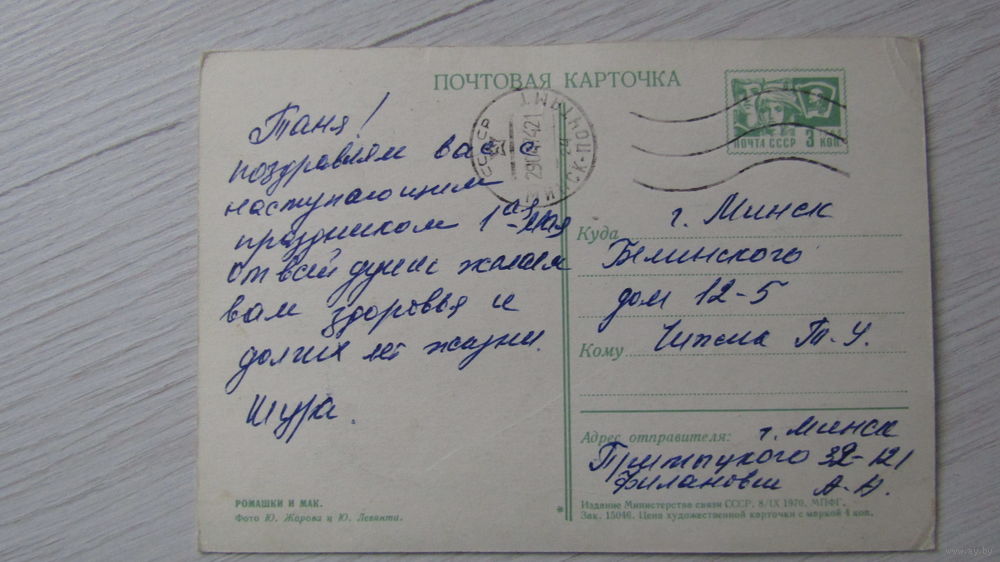 ПОЧТОВАЯ КАРТОЧКА
Таня!
поздравляем вас с
наступающим
праздником 1ая Мая
От всей души желаем
вам здоровья и
долгих лет жизни.
Шура.
РОМАШКИ И МАК.
Фото Ю. Жарова и Ю. Леванта.
ПОЧТА СССР 3 КОП
Куда г. Минск
Белинского
дом 12-5
Кому Чижма Т. У.
Адрес отправителя: г. Минск
Притыцкого 32-121
А. Н.
Издание Министерства связи СССР. 8/IX 1970. МПФГ.
Зак. 15046. Цена художественной карточки с маркой 4 коп.
www.ay.by